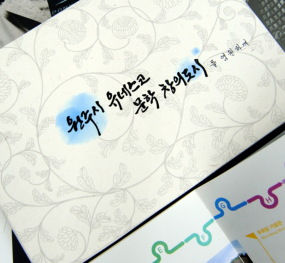 원주시 유네스코
문학 창의도시